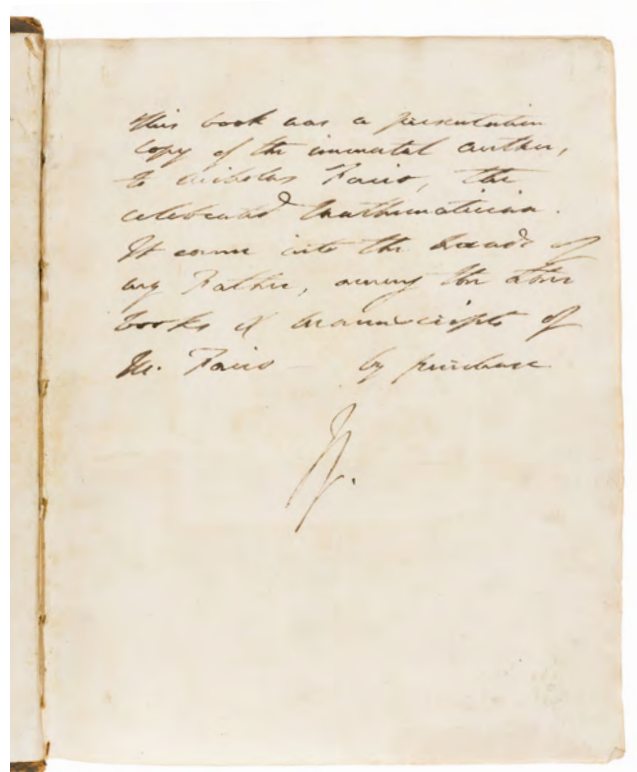 This book was a presentation
copy of the immortal author,
to Nicholas Facio, the
celebrated Mathematician.
It came into the hands of
my Father, among the other
books & manuscripts of
N. Facio — by purchase